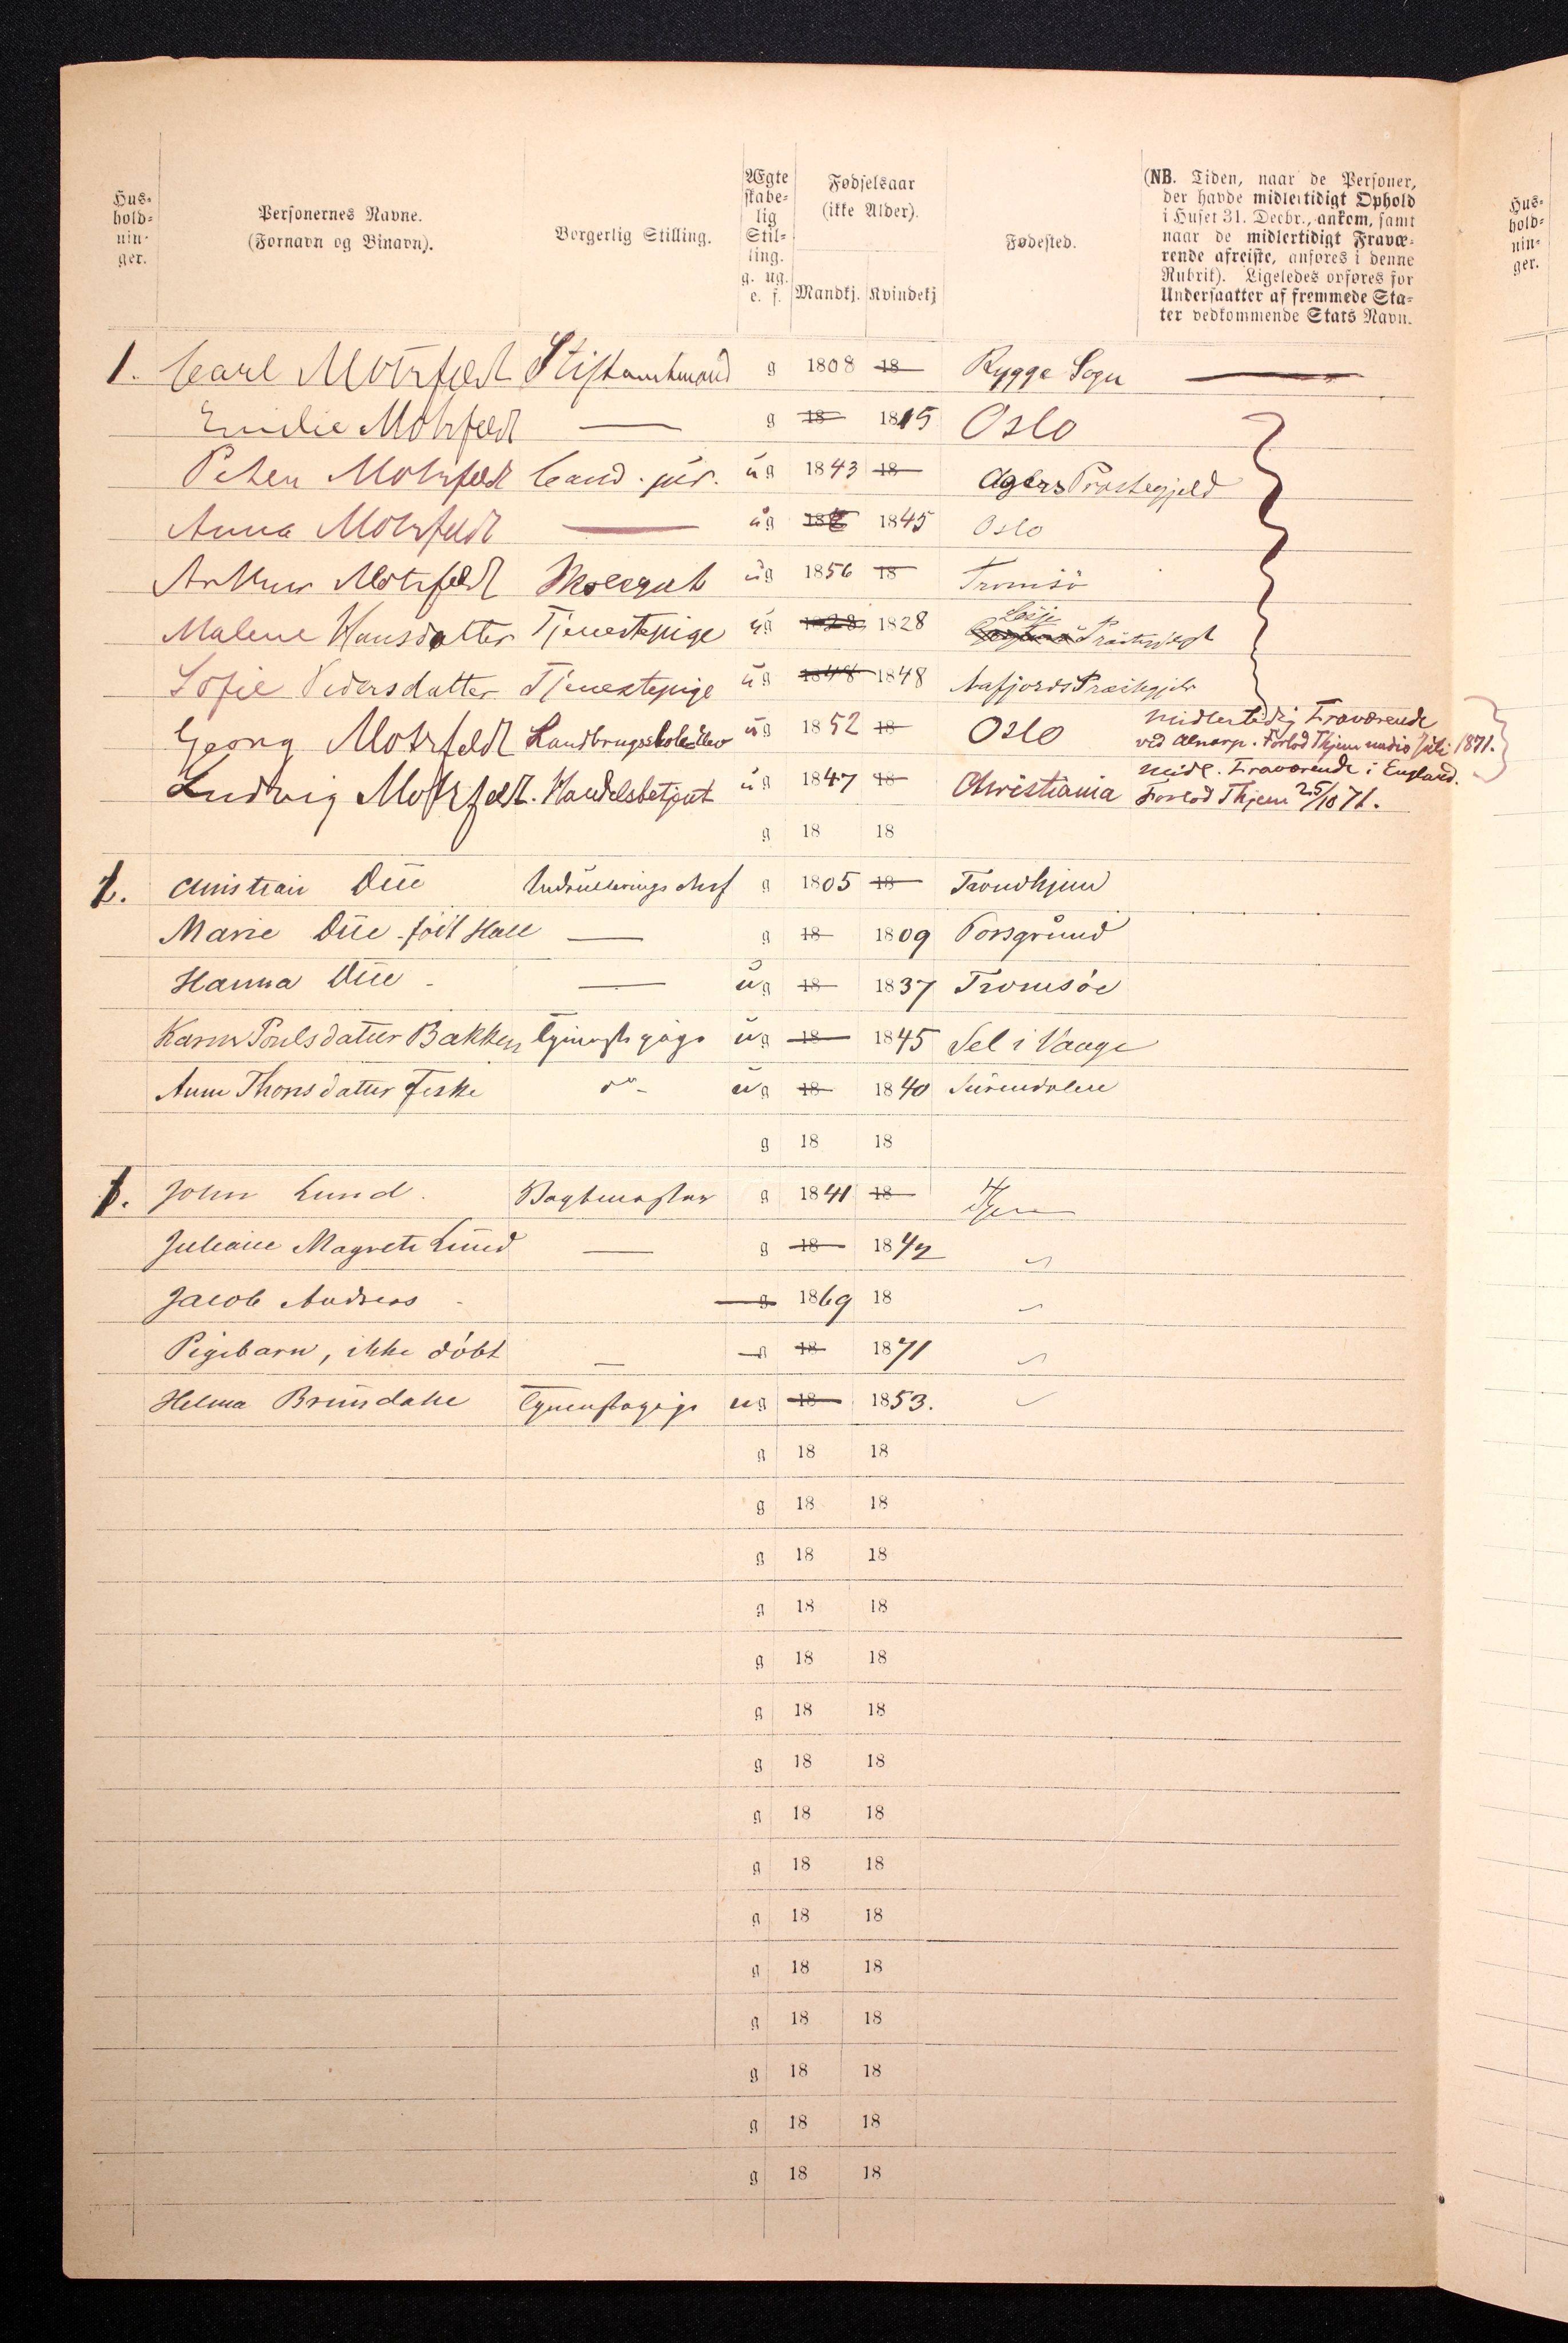 Hus-
hold-
nin-
ger.
Personernes Navne.
(Fornavn og Binavn).
Borgerlig Stilling.
Ægte
skabe-
lig
Stil-
ling.
g. ug.
e. f.
Fødselsaar
(ikke Alder).
Mandkj. Kvindekj
Fødested.
(NB. Tiden, naar de Personer,
der havde midlertidigt Ophold
i Huset 31. Decbr., ankom, samt
naar de midlertidigt Fravæ-
rende afreiste, anføres i denne
Rubrik). Ligeledes opføres for
Undersaatter af fremmede Sta-
ter vedkommende Stats Navn.
Hus-
hold-
nin-
ger.
1. Carl Motzfeldt Stiftamtmand g 1808 18 Rygge Sogn
Emilie Motzfeldt — g 18 1815 Oslo
Peter Motzfeldt Cand. jur. ug 1843 18 Agers Præstegjeld
Anna Motzfeldt — ug 18 1845 Oslo
Arthur Motzfeldt Skolegut ug 1856 18 Tromsö
Malene Hansdatter Tjenestepige ug 1828 1828 Præstegjeld
Sofie Pedersdatter Tjenestepige ug 1848 1848 Aafjords Præstegjeld
Georg Motzfeldt Landbrugsskole-Elev ug 1852 18 Oslo midlertidig Fraværende
ved Alnarp. Forlod Thjem medio Juli 1871.
Ludvig Motzfeldt. Handelsbetjent ug 1847 18 Christiania midl. Fraværende i England.
Forlod Thjem 25/10 71.
g 18 18
2. Christian Düe Indrulleringschef g 1805 18 Trondhjem
Marie Düe född Hall — g 18 1809 Porsgrund
Hanna Düe — ug 18 1837 Tromsöe
Karen Poulsdatter Bakken Tjenestepige ug 18 1845 Sel i Vaage
Anne Thorsdatter Feske do ug 18 1840 Surendalen
g 18 18
3. John Lund. Vagtmester g 1841 18
Juliane Magrete Lund — g 18 1842 "
Jacob Andreas g 1869 18 "
Pigebarn, ikke döbt — g 18 1871 "
Helma Brunsdahe Tjenestepige ug 18 1853. "
g 18 18
g 18 18
g 18 18
g 18 18
g 18 18
g 18 18
g 18 18
g 18 18
g 18 18
g 18 18
g 18 18
g 18 18
g 18 18
g 18 18
g 18 18